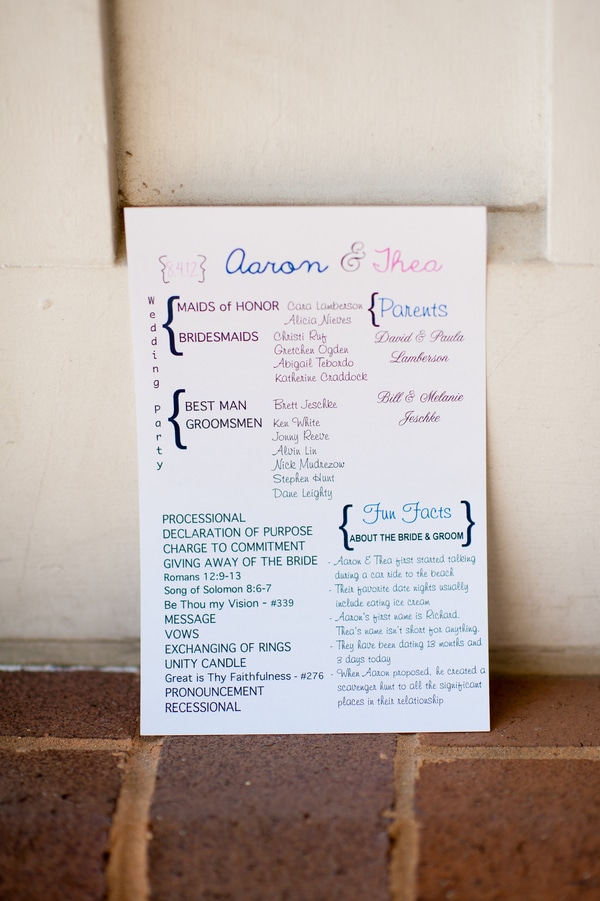 {8.4.12} Aaron & Thea
Wedding Party
{ MAIDS of HONOR Cara Lamberson
Alicia Nieves
BRIDESMAIDS Christi Ruf
Gretchen Ogden
Abigail Tebordo
Katherine Craddock
{ BEST MAN Brett Jeschke
GROOMSMEN Ken White
Jonny Reeve
Alvin Lin
Nick Mudrezow
Stephen Hunt
Dane Leighty
{ Parents
David & Paula
Lamberson
Bill & Melanie
Jeschke
PROCESSIONAL
DECLARATION OF PURPOSE
CHARGE TO COMMITMENT
GIVING AWAY OF THE BRIDE
Romans 12:9-13
Song of Solomon 8:6-7
Be Thou my Vision - #339
MESSAGE
VOWS
EXCHANGING OF RINGS
UNITY CANDLE
Great is Thy Faithfulness - #276
PRONOUNCEMENT
RECESSIONAL
{ Fun Facts }
ABOUT THE BRIDE & GROOM
- Aaron & Thea first started talking
during a car ride to the beach
- Their favorite date nights usually
include eating ice cream
- Aaron's first name is Richard.
Thea's name isn't short for anything.
- They have been dating 13 months and
3 days today
- When Aaron proposed, he created a
scavenger hunt to all the significant
places in their relationship